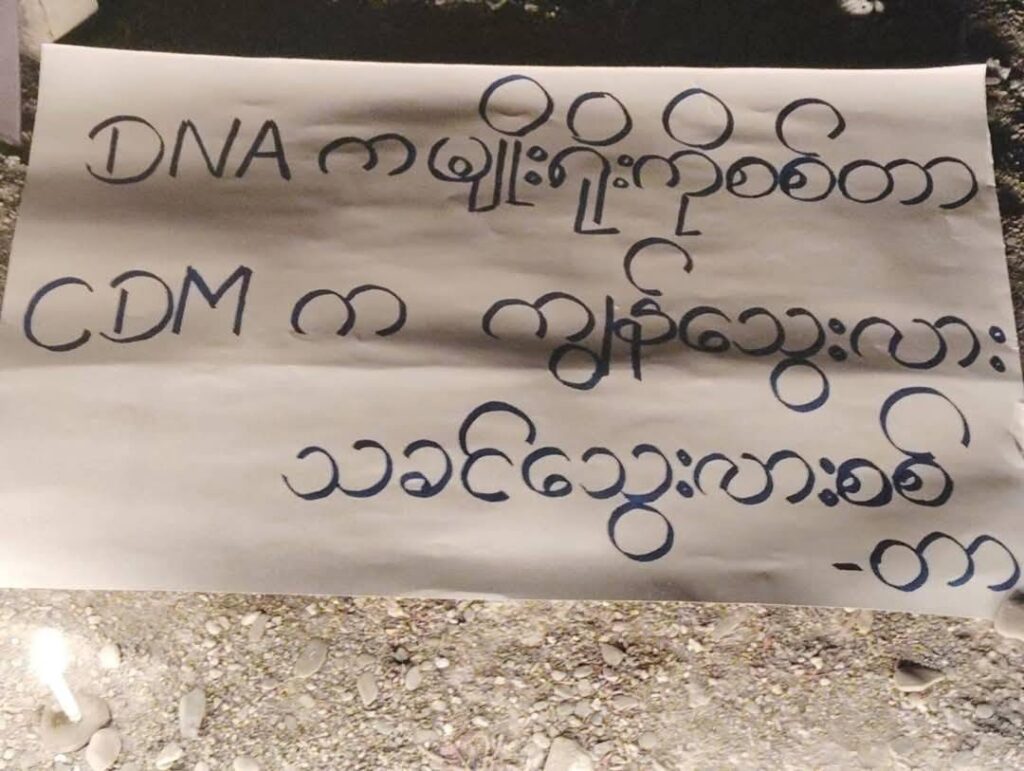 DNA ကမျိုးရိုးကိုစစ်တာ
CDM က ကျွန်သွေးလား
သခင်သွေးလားစစ်
-တာ